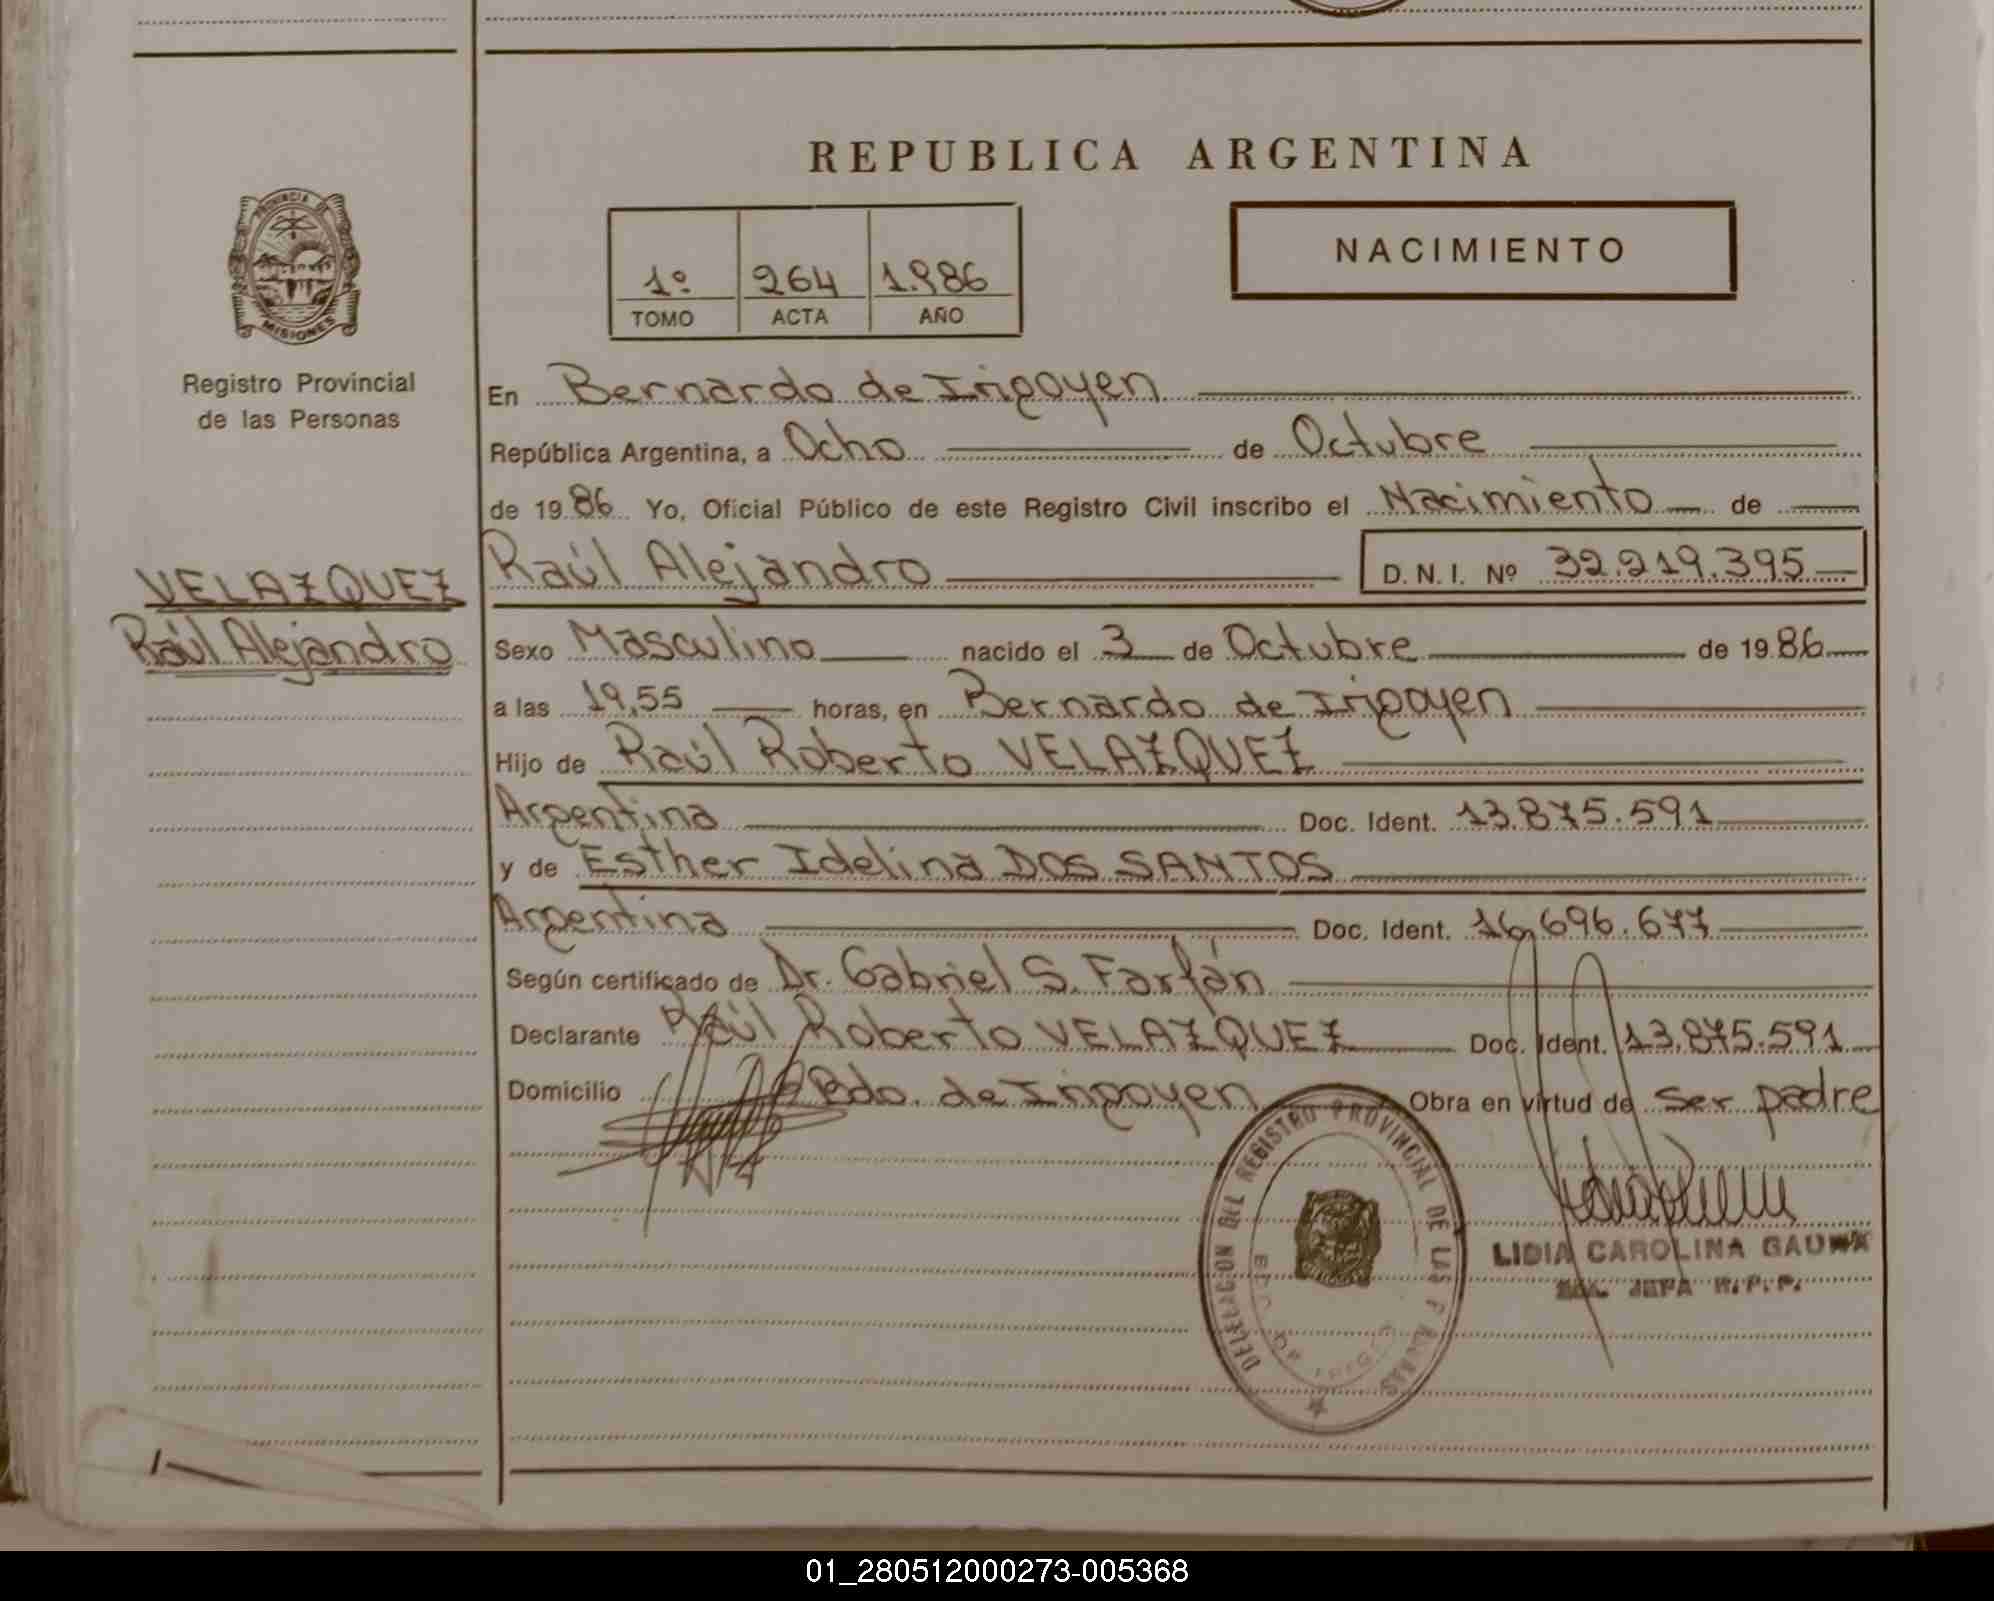 REPUBLICA ARGENTINA
PROVINCIA DE
MISIONES
Registro Provincial
de las Personas
VELAZQUEZ
Raúl Alejandro
1º 264 1.986
TOMO ACTA AÑO
NACIMIENTO
En Bernardo de Irigoyen
República Argentina, a Ocho de Octubre
de 1986 Yo, Oficial Público de este Registro Civil inscribo el Nacimiento de
Raúl Alejandro D.N.I. Nº 32.219.395
Sexo Masculino nacido el 3 de Octubre de 1986
a las 19,55 horas, en Bernardo de Irigoyen
Hijo de Raúl Roberto VELAZQUEZ
Argentina Doc. Ident. 13.875.591
y de Esther Idelina DOS SANTOS
Argentina Doc. Ident. 16.696.677
Según certificado de Dr. Gabriel S. Farfán
Declarante Raúl Roberto VELAZQUEZ Doc. Ident. 13.875.591
Domicilio Bdo. de Irigoyen Obra en virtud de ser padre
DELEGACION DEL REGISTRO PROVINCIAL DE LAS
LIDIA CAROLINA
JEFA R.P.P.
01_280512000273-005368